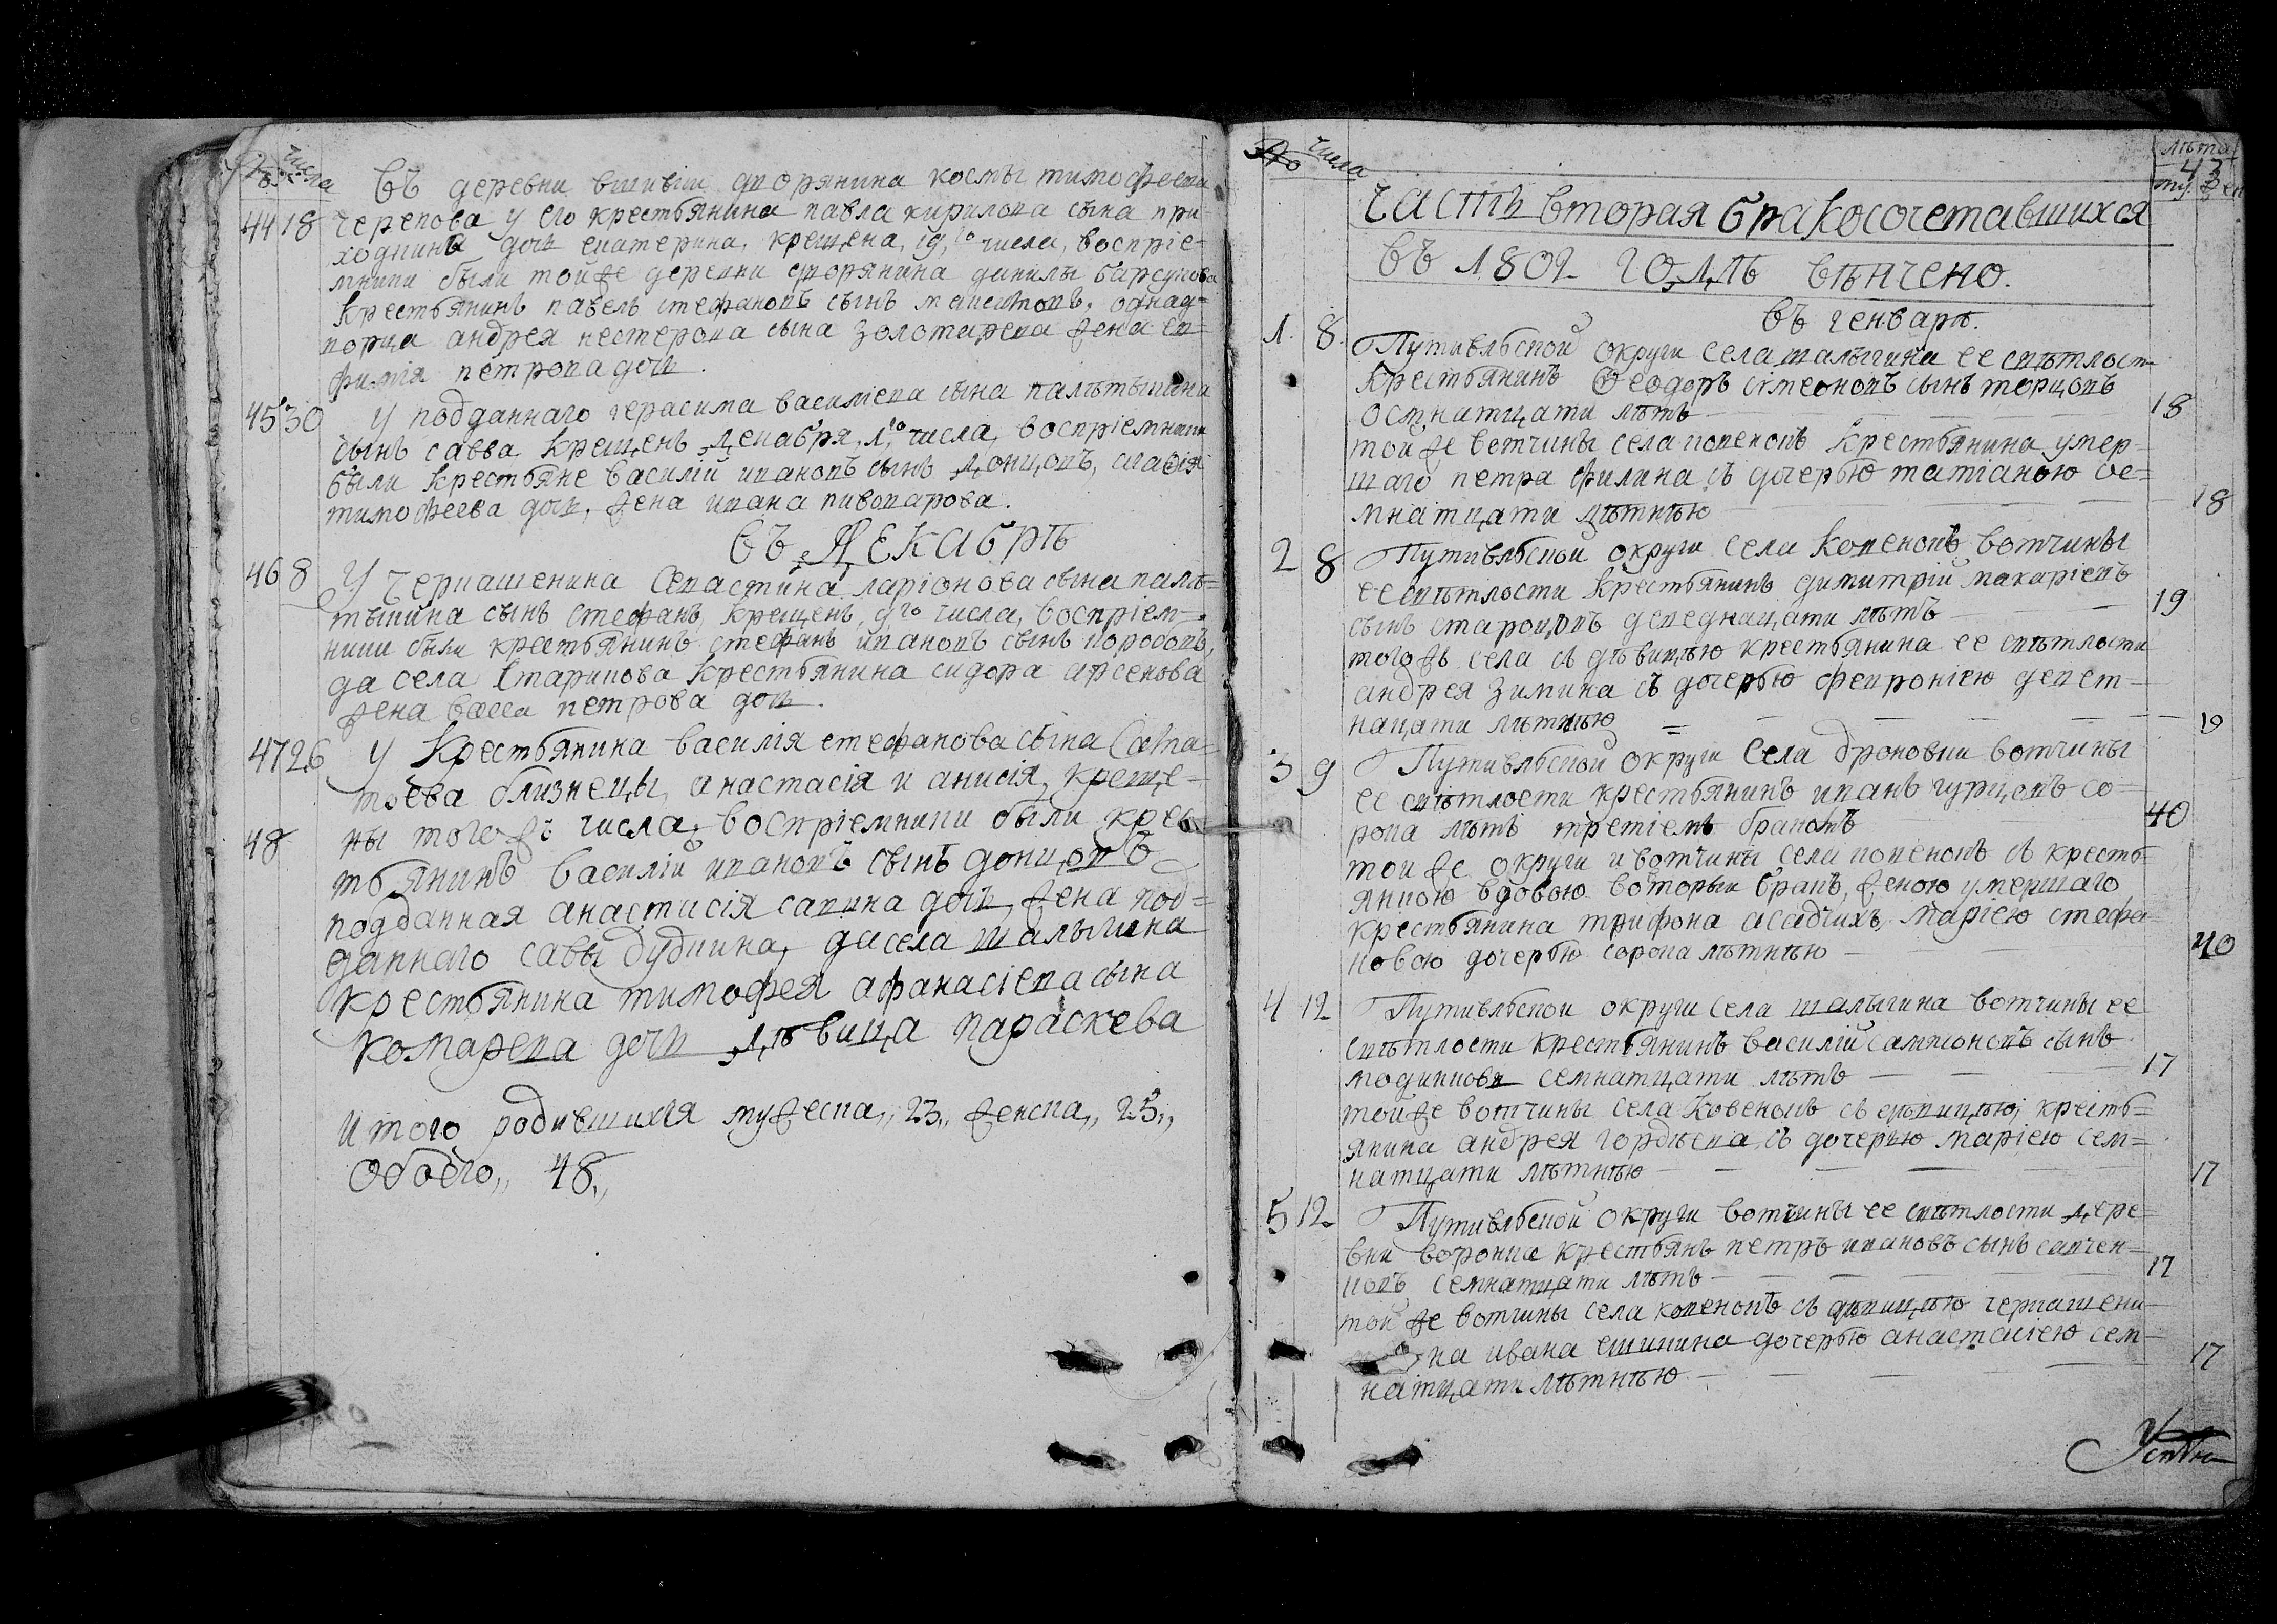 № числа
Въ деревни вшивки дворянина космы тимофеева
44 18 черепова у его крестьянина павла кирилова сына при
ходкина дочь екатерина, крещена, 19,го числа, воспріе=
мники были тойже деревни дворянина данилы барсукова
крестьянинъ павелъ стефановъ сынъ однад=
ворца андрея нестерова сына золотарева жена ев=
фимія петрова дочь.
45 30 У подданнаго герасима василіева сына
сынъ савва крещенъ декабря, 1,го числа, воспріемники
были крестьяне василій ивановъ сынъ донцовъ,
тимофеева дочь, жена ивана пивоварова.
Въ Декабрѣ
46 8 У черкашенина севастиана ларіонова сына
сынъ стефанъ, крещенъ, 9го числа, воспріем=
ники были крестьянинъ стефанъ ивановъ сынъ коробовъ,
да села старикова крестьянина сидора арсенова
жена васса петрова дочь.
47 26 У Крестьянина василія стефанова сына
близнецы, анастасія и анисія, креще=
48 ны того жъ числа, воспріемники были крес
тьянинъ василій ивановъ сынъ донцовъ
подданная анастасія савина дочь, жена под=
даннаго савы дудкина, да села шалыгина
крестьянина тимофея афанасіева сына
комарева дочь дѣвица параскева
Итого родившихся мужеска,, 23,, женска,, 25,,
Обоего,, 48,,
№ числа
лѣта
43
му. жен
Часть вторая бракосочетавшихся
въ 1802 годѣ вѣнчено.
въ генварѣ.
1. 8. Путивльской округи села шалыгина ее свѣтлост
крестьянинъ Ѳеодоръ симеоновъ сынъ торцовъ
осмнатцати лѣтъ 18
той же вотчины села ковенокъ крестьянина умер=
шаго петра филина съ дочерью татіаною осе=
мнатцати лѣтнѣю 18
2 8 Путивльской округи села ковенокъ вотчины
ее свѣтлости крестьянинъ димитрій макаріевъ
сынъ деведнацати лѣтъ 19
того жъ села съ дѣвицью крестьянина ее свѣтлости
андрея зимина съ дочерью февроніею девет=
нацати лѣтнѣю 19
3 9 Путивльской округи села дроновки вотчины
ее свѣтлости крестьянинъ иванъ гурцовъ со=
рока лѣтъ третіемъ бракомъ 40
той же округи и вотчины села ковенокъ съ кресть=
янкою вдовою вторымъ бракъ, женою умершаго
крестьянина трифона асадчихъ, маріею стефа=
новою дочерью сорока лѣтнѣю 40
4 12 Путивльской округи села шалыгина вотчины ее
свѣтлости крестьянинъ василій сампсоновъ сынъ
модинновъ семнатцати лѣтъ 17
тойже вотчины села ковенокъ съ дѣвицью, кресть=
янина андрея гордѣева съ дочерью маріею сем=
натцати лѣтнѣю 17
5 12 Путивльской округи вотчины ее свѣтлости дере=
вни воронка крестьянъ петръ ивановъ сынъ савчен=
ковъ семнатцати лѣтъ 17
той же вотчины села ковенокъ съ дѣвицью черкашени
на ивана дочерью анастасіею сем=
натцати лѣтнѣю 17